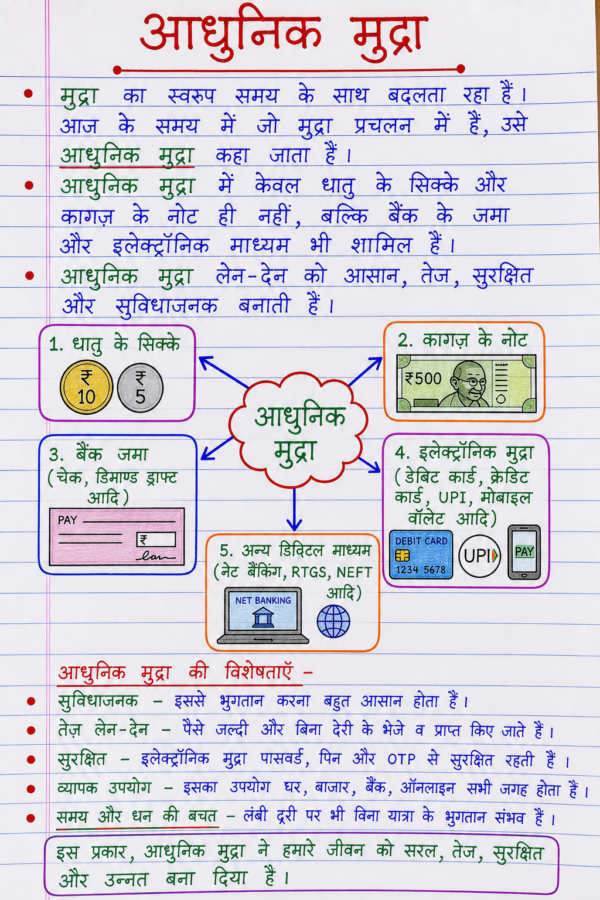 आधुनिक मुद्रा
मुद्रा का स्वरुप समय के साथ बदलता रहा हैं।
आज के समय में जो मुद्रा प्रचलन में हैं, उसे
आधुनिक मुद्रा कहा जाता हैं।
आधुनिक मुद्रा में केवल धातु के सिक्के और
कागज़ के नोट ही नहीं, बल्कि बैंक के जमा
और इलेक्ट्रॉनिक माध्यम भी शामिल हैं।
आधुनिक मुद्रा लेन-देन को आसान, तेज, सुरक्षित
और सुविधाजनक बनाती हैं।
1. धातु के सिक्के
₹
10
₹
5
2. कागज़ के नोट
₹500
आधुनिक
मुद्रा
3. बैंक जमा
(चेक, डिमाण्ड ड्राफ्ट
आदि)
PAY
₹
4. इलेक्ट्रॉनिक मुद्रा
(डेबिट कार्ड, क्रेडिट
कार्ड, UPI, मोबाइल
वॉलेट आदि)
DEBIT CARD
1234 5678
UPI
PAY
5. अन्य डिज़िटल माध्यम
(नेट बैंकिंग, RTGS, NEFT
आदि)
NET BANKING
आधुनिक मुद्रा की विशेषताएँ –
सुविधाजनक – इससे भुगतान करना बहुत आसान होता हैं।
तेज़ लेन-देन – पैसे जल्दी और बिना देरी के भेजे व प्राप्त किए जाते हैं।
सुरक्षित – इलेक्ट्रॉनिक मुद्रा पासवर्ड, पिन और OTP से सुरक्षित रहती हैं।
व्यापक उपयोग – इसका उपयोग घर, बाजार, बैंक, ऑनलाइन सभी जगह होता हैं।
समय और धन की बचत – लंबी दूरी पर भी विना यात्रा के भुगतान संभव हैं।
इस प्रकार, आधुनिक मुद्रा ने हमारे जीवन को सरल, तेज, सुरक्षित
और उन्नत बना दिया है।